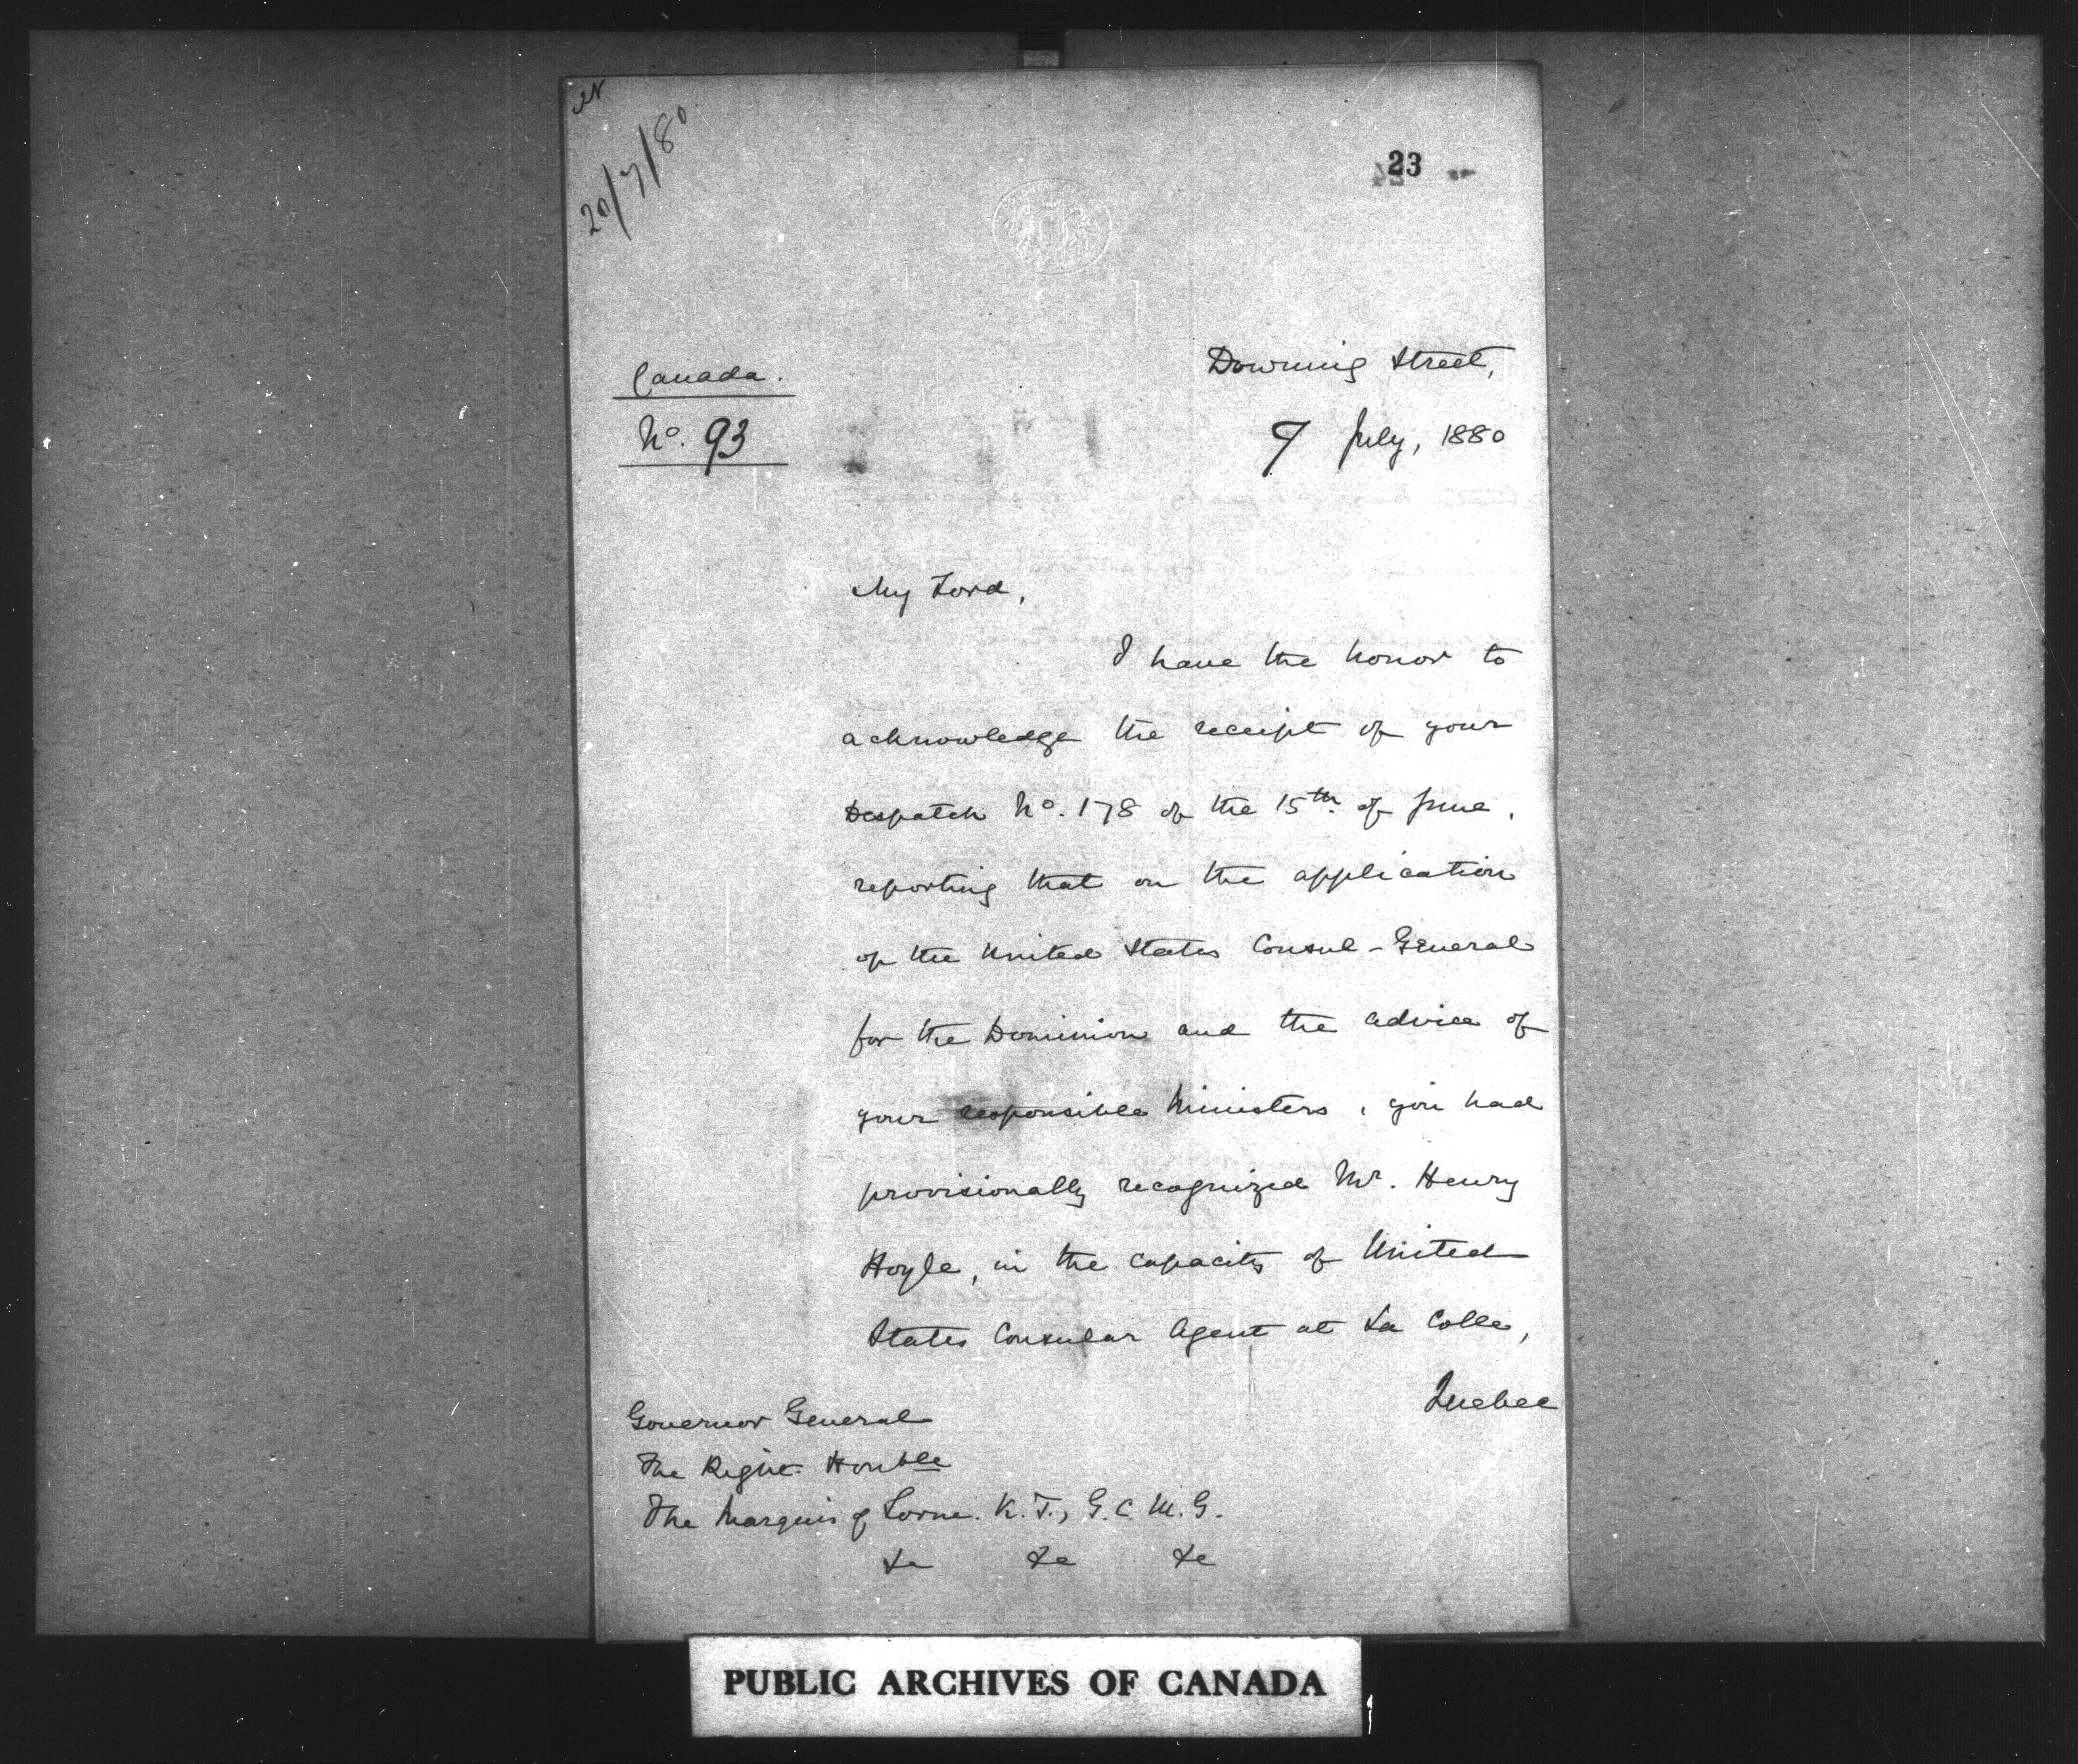 20/7/80
23
Canada.
No. 93
Downing Street,
9 July, 1880
My Lord,
I have the honor to
acknowledge the receipt of your
Despatch No. 178 of the 15th. of June,
reporting that on the application
of the United States Consul-General
for the Dominion and the advice of
your responsible Ministers, you had
provisionally recognized Mr. Henry
Hoyle, in the capacity of United
States Consular Agent at La Colle,
Quebec
Governor General
The Right Honble
The Marquis of Lorne. K.T., G.C.M.G.
&c &c &c
PUBLIC ARCHIVES OF CANADA